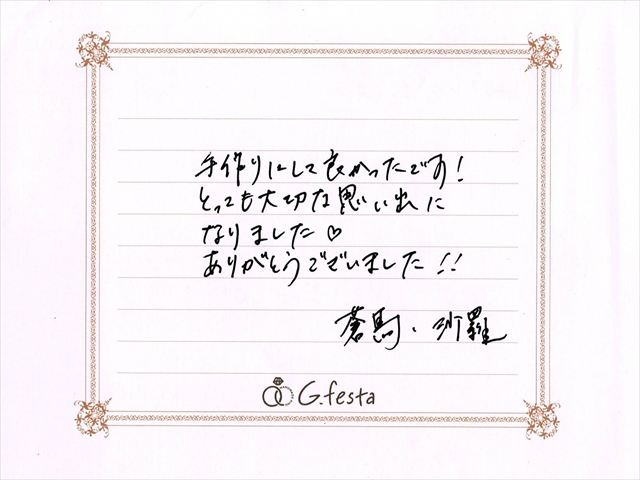 手作りにして良かったです!
とっても大切な思い出に
なりました♡
ありがとうございました!!
蒼馬・沙羅
G.festa